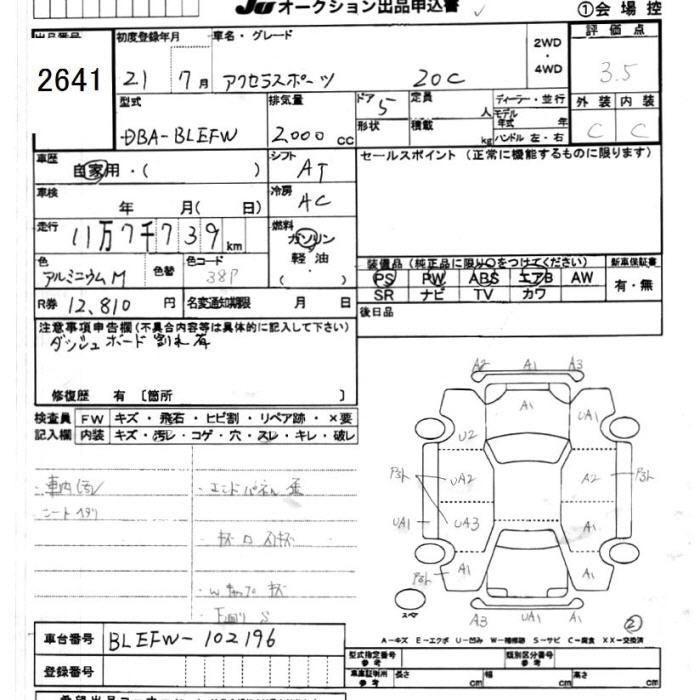 JU オークション出品申込書
①会場控
出品番号
2641
初度登録年月
21 7月
車名・グレード
アクセラスポーツ 20C
2WD
・
4WD
評価点
3.5
外装 内装
C C
型式
DBA-BLEFW
排気量
2000 CC
ドア 5
形状
定員 人
積載 kg
ディーラー・並行
モデル年式 年
ハンドル 左・右
車歴
自家用・( )
シフト AT
セールスポイント(正常に機能するものに限ります)
車検
年 月( 日)
冷房 AC
走行
11万7千739 km
燃料
ガソリン
軽・油
( )
色
アルミニウムM
色替
色コード
38P
装備品(純正品に限り○をつけてください)
PS PW ABS エアB AW
SR ナビ TV カワ
新車保証書
有・無
R券 12,810 円
名変通知期限 月 日
後日品
注意事項申告欄(不具合内容等は具体的に記入して下さい)
ダッシュボード割れ有
修復歴 有 〔箇所 〕
検査員記入欄
FW キズ・飛石・ヒビ割・リペア跡・×要
内装 キズ・汚レ・コゲ・穴・スレ・キレ・破レ
車内汚レ
シートヘタリ
エンドパネル
Wキャップキズ
下回りS
A2 A1 A3
A1
U2 UA1
P3ト UA2 A2 P3ト
UA1 UA3 A1
A1 A1
A3 UA1 A1
スペア
②
A-キズ E-エクボ U-凹み W-補修跡 S-サビ C-腐食 XX-交換済
車台番号 BLEFW-102196
登録番号
型式指定番号 参考
類別区分番号 参考
車庫証明用 参考 長さ cm 幅 cm 高さ cm